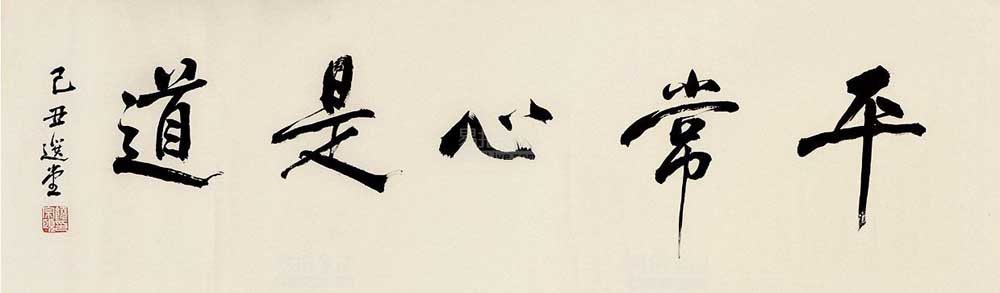 平常心是道
己丑選堂